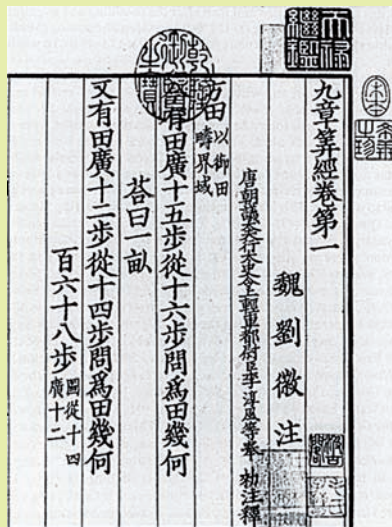 天祿繼鑑
乾隆御覽之寶
宋本
九章筭經卷第一
魏劉徽注
唐朝議大夫行太史令上輕車都尉臣李淳風等奉 勑注釋
方田以御田疇界域
今有田廣十五步從十六步問爲田幾何
荅曰一畝
又有田廣十二步從十四步問爲田幾何
百六十八步圖從十四廣十二